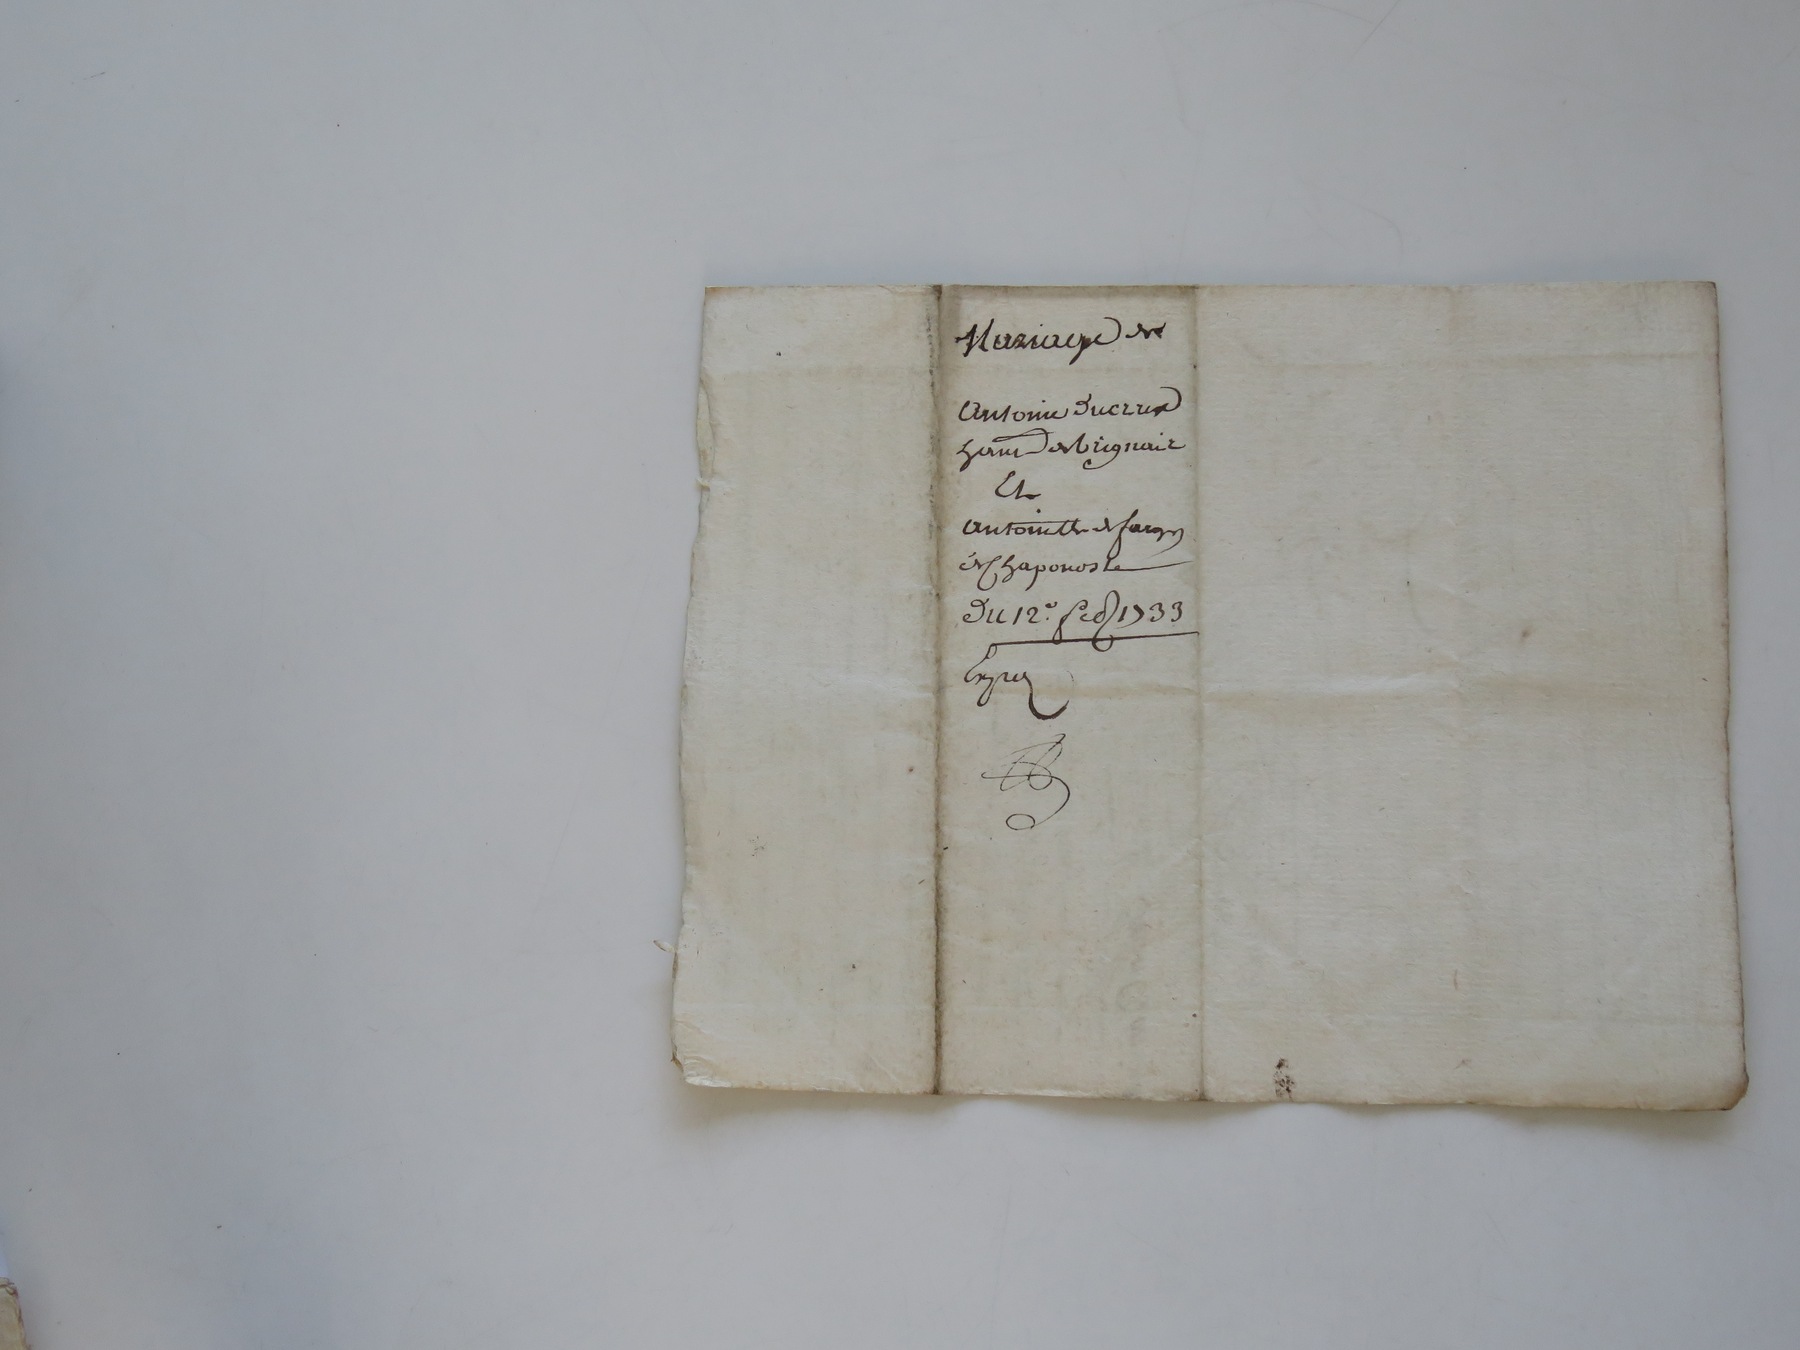 Mariage de
Antoine Ducreux
hant de brignair
Et
Antoinette de farge
de Chaponoste
Du 12e. feb 1733
Exped